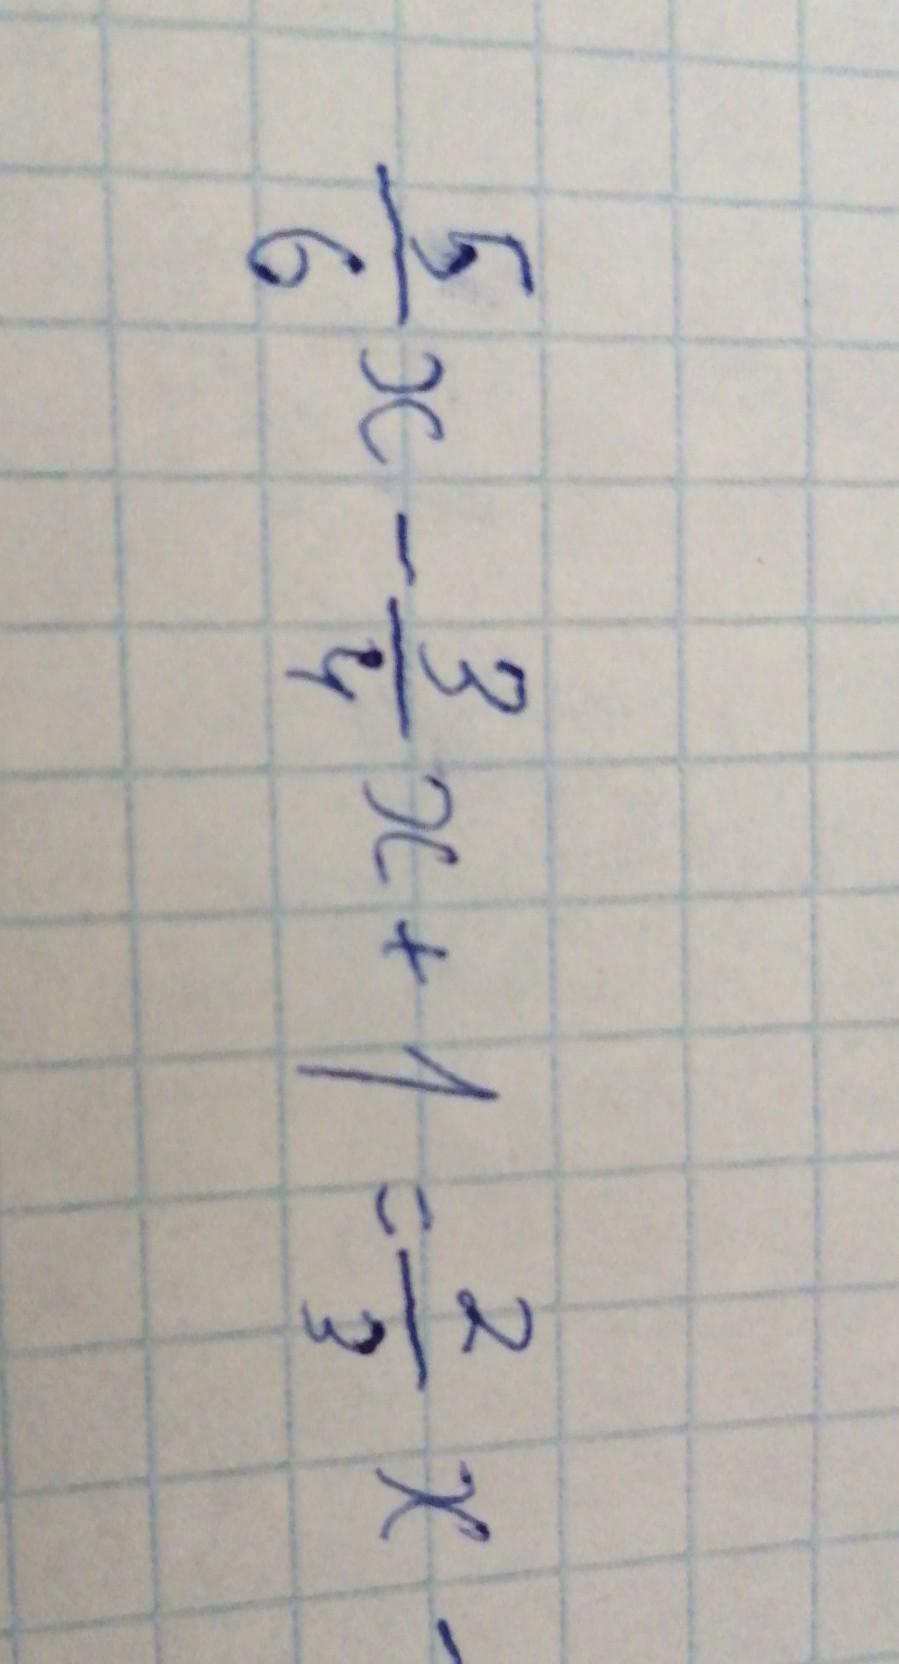 5/6 x - 3/4 x + 1 = 2/3 x -